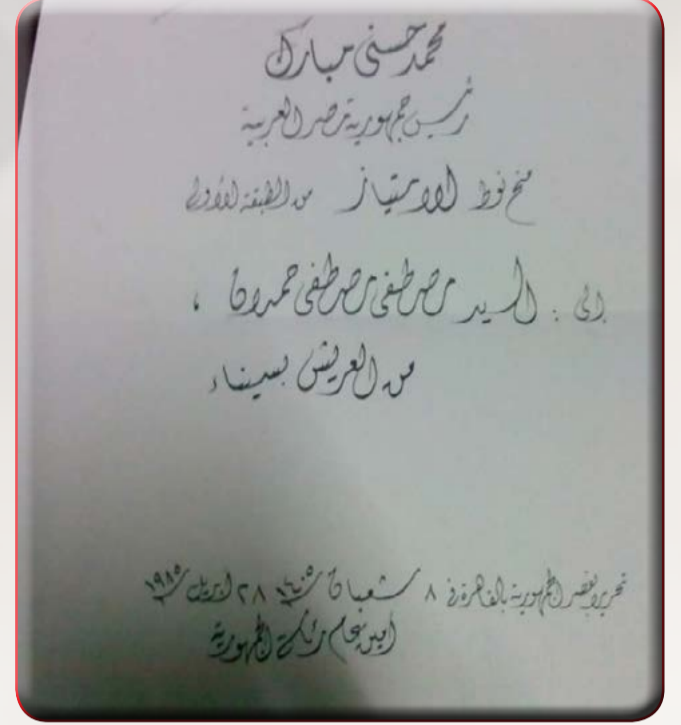 محمد حسنى مبارك
رئيس جمهورية مصر العربية
منح نوط الامتياز من الطبقة الأولى
إلى : السيد مصطفى مصطفى حمدان ،
من العريش بسيناء
تحريرا بقصر الجمهورية بالقاهرة فى ٨ شعبان ١٤٠٥ ٢٨ ابريل ١٩٨٥
امين عام رئاسة الجمهورية